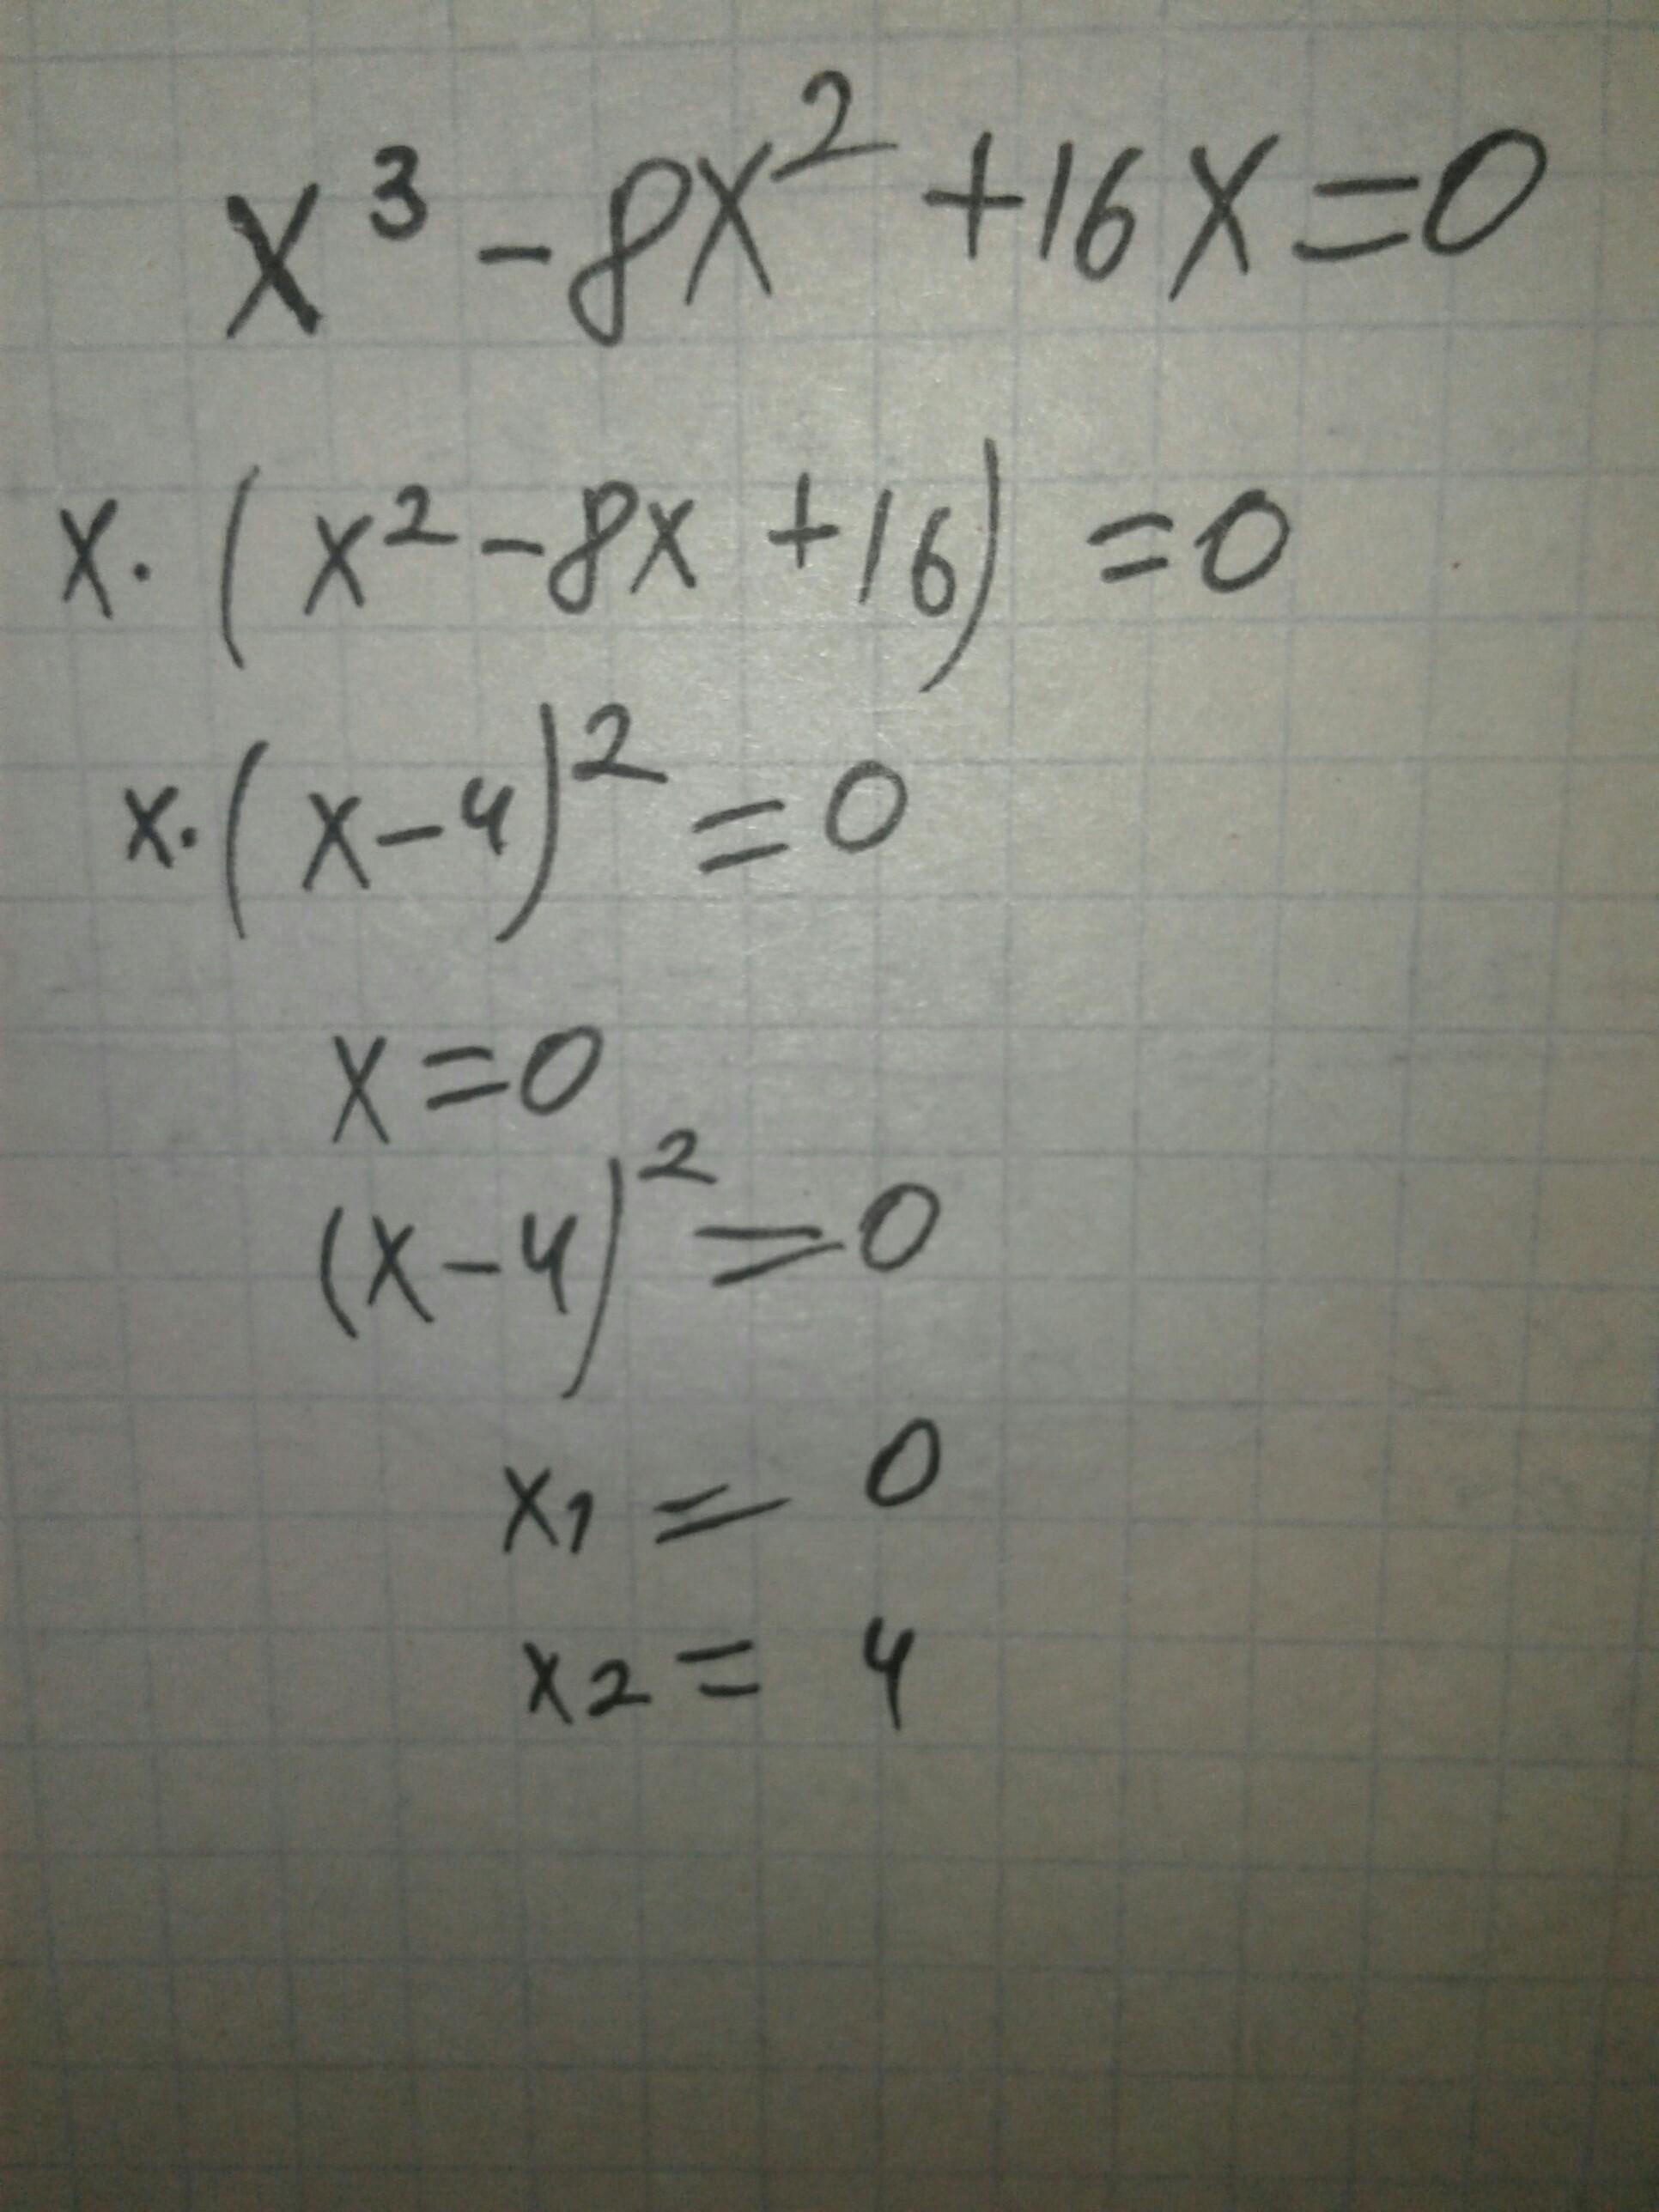 x³ - 8x² + 16x = 0
x · (x² - 8x + 16) = 0
x · (x - 4)² = 0
x = 0
(x - 4)² = 0
x₁ = 0
x₂ = 4